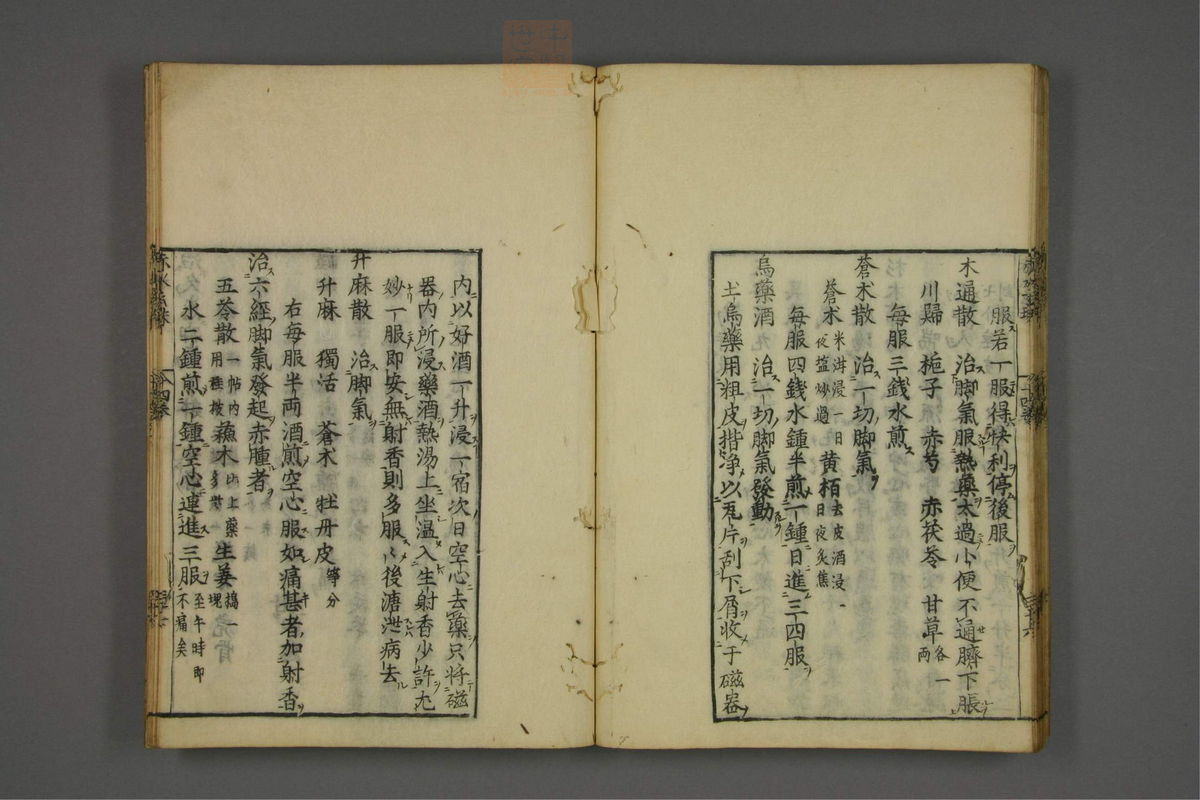 服若一服得快利停後服
木通散 治脚氣服熱藥太過小便不通臍下脹
川歸 梔子 赤芍 赤茯苓 甘草各一兩
每服三錢水煎
蒼术散 治一切脚氣
蒼术米泔浸一日夜塩炒過 黄栢去皮酒浸一日夜炙焦
每服四錢水鍾半煎一鍾日進三四服
烏藥酒 治一切脚氣發動
土烏藥用粗皮揩净以瓦片刮下屑收于磁器
内以好酒一升浸一宿次日空心去藥只將磁
器内所浸藥酒熱湯上坐温入生射香少許尤
妙一服即安無射香則多服〻後溏泄病去
升麻散 治脚氣
升麻 獨活 蒼术 牡丹皮等分
右每服半両酒煎空心服如痛甚者加射香
治六經脚氣發起赤腫者
五苓散一帖内用桂枝 蘓木比上藥多對一 生姜搗一塊
水二鍾煎一鍾空心連進三服至午時即不痛矣